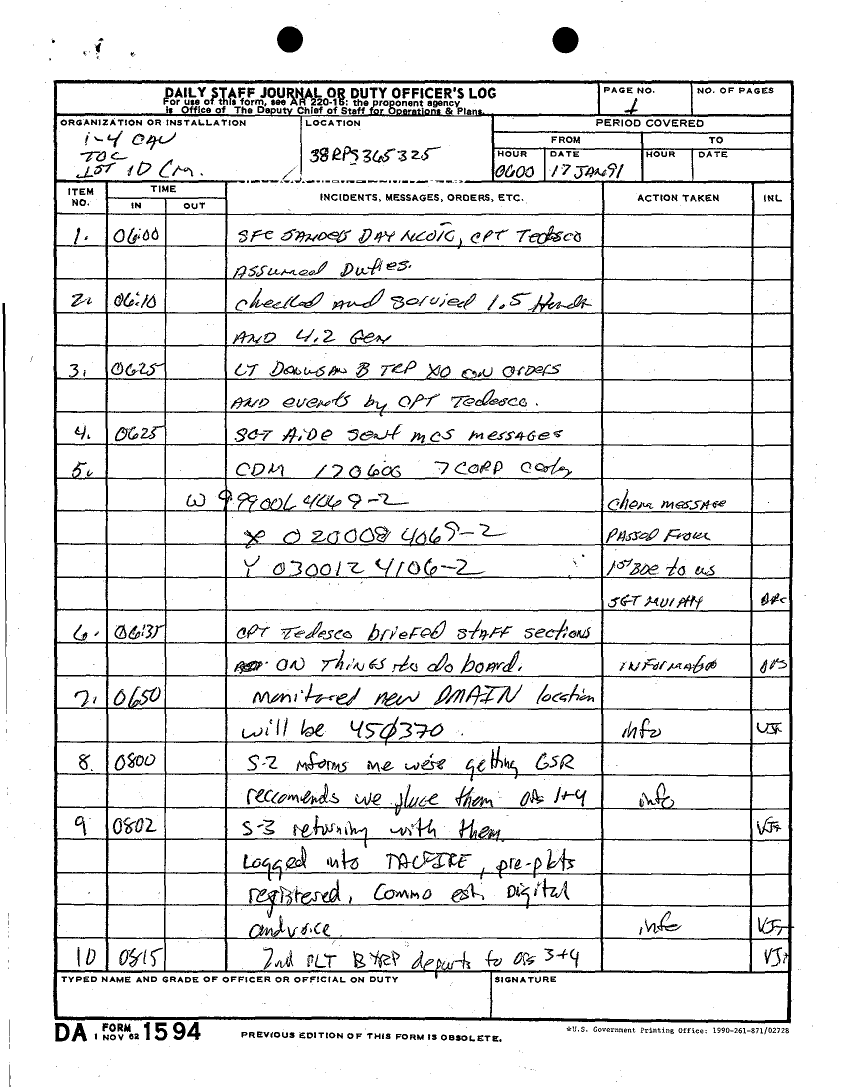 DAILY STAFF JOURNAL OR DUTY OFFICER'S LOG
For use of this form, see AR 220-15; the proponent agency
is Office of The Deputy Chief of Staff for Operations & Plans.
PAGE NO.
1
NO. OF PAGES
ORGANIZATION OR INSTALLATION
1-4 CAV
TOC
1ST ID Cm.
LOCATION
38RPS365325
PERIOD COVERED
FROM
TO
HOUR
0600
DATE
17 JAN 91
HOUR
DATE
ITEM NO.
TIME
IN
OUT
INCIDENTS, MESSAGES, ORDERS, ETC.
ACTION TAKEN
INL
1. 0600 SFC SANDERS DAY NCOIC, CPT Tedesco
Assumed Duties.
2. 0610 checked and 1.5
AND 4.2 Gen
3. 0625 LT B TRP XO on orders
AND events by CPT Tedesco.
4. 0625 SGT AiDe sent mcs messages
5. CDM 170600 7 CORP
W 999006 4069-2 Chem message
X 020008 4069-2 PASSED From
Y 030012 4106-2 1st BDE to us
SGT MURPHY
6. 0635 CPT Tedesco briefed staff sections
ON THINGS to do board. INFORMATION
7. 0650 monitored new DMAIN location
will be 450370. info
8. 0800 S-2 informs me we're getting GSR
reccomends we place them OPs 1+4 info
9 0802 S-3 returning with them.
Logged into TACFIRE, pre-plots
registered, Commo est. Digital
and voice info
10 0815 2nd PLT B TRP departs to OPs 3+4
TYPED NAME AND GRADE OF OFFICER OR OFFICIAL ON DUTY
SIGNATURE
DA FORM 1 NOV 62 1594
PREVIOUS EDITION OF THIS FORM IS OBSOLETE.
*U.S. Government Printing Office: 1990-261-871/02728